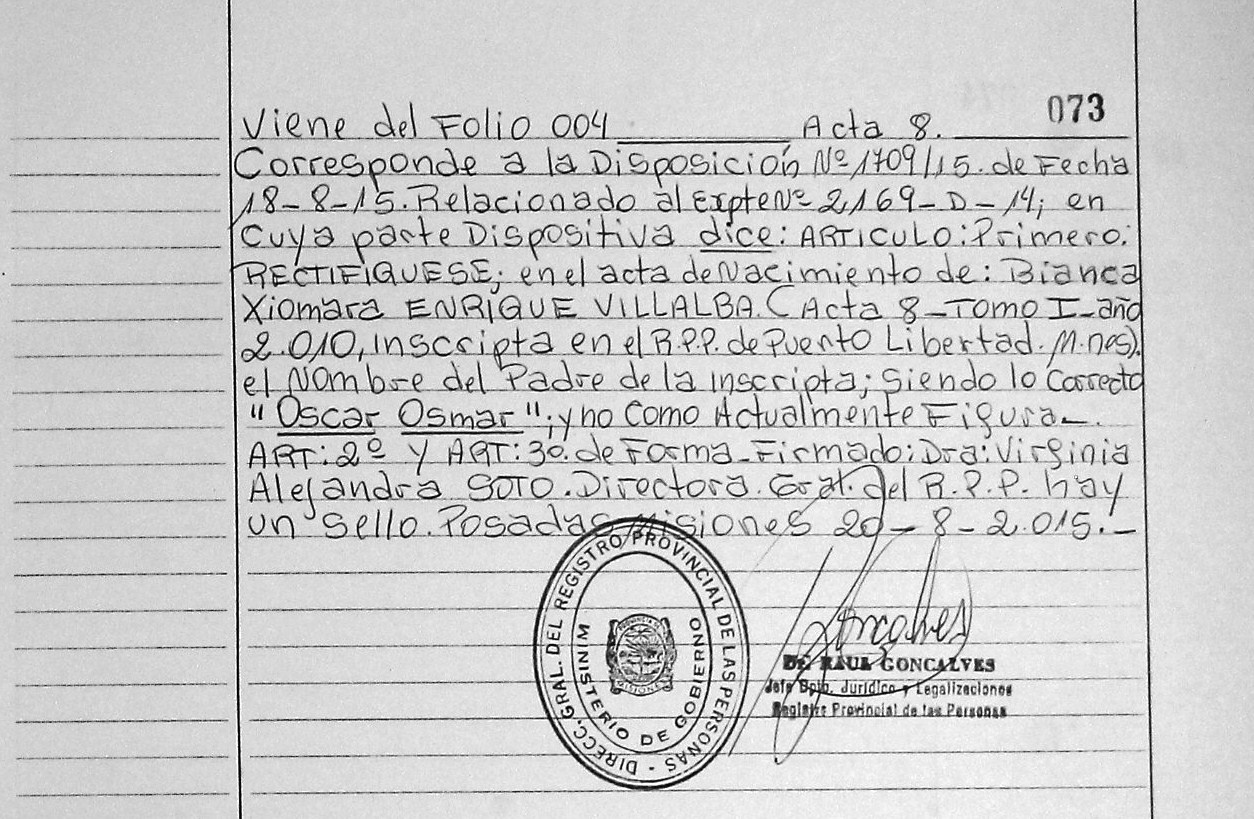 073
Viene del Folio 004 Acta 8.
Corresponde a la Disposición Nº 1709/15. de Fecha
18-8-15. Relacionado al Expte Nº 2169-D-14; en
cuya parte Dispositiva dice: ARTICULO: Primero:
RECTIFIQUESE; en el acta de Nacimiento de: Bianca
Xiomara ENRIQUE VILLALBA. (Acta 8-Tomo I-año
2.010, inscripta en el R.P.P. de Puerto Libertad. M.nes).
el Nombre del Padre de la inscripta; Siendo lo Correcto
"Oscar Osmar"; y no como Actualmente Figura-.
ART: 2º y ART: 3º. de Forma-Firmado: Dra: Virginia
Alejandra SOTO. Directora. Gral. del R.P.P. hay
un sello. Posadas Misiones 20-8-2.015.-
DIRECC. GRAL. DEL REGISTRO PROVINCIAL DE LAS PERSONAS -
MINISTERIO DE GOBIERNO
PROVINCIA DE
MISIONES
Goncalves
Dr. RAUL GONCALVES
Jefe Dpto. Jurídico y Legalizaciones
Registro Provincial de las Personas